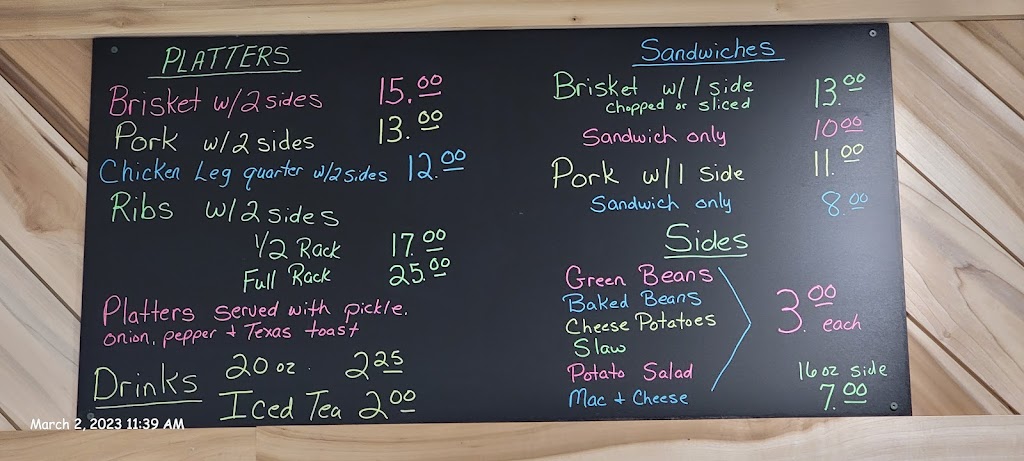 PLATTERS
Brisket w/2 sides 15.00
Pork w/2 sides 13.00
Chicken Leg quarter w/2 sides 12.00
Ribs w/2 sides
1/2 Rack 17.00
Full Rack 25.00
Platters served with pickle,
onion, pepper + Texas toast
Drinks 20 oz. 2 25
Iced Tea 2 00
Sandwiches
Brisket w/1 side 13.00
chopped or sliced
Sandwich only 10 00
Pork w/1 side 11.00
Sandwich only 8.00
Sides
Green Beans
Baked Beans
Cheese Potatoes
Slaw
Potato Salad
Mac + Cheese
3.00 each
16 oz side
7.00
March 2, 2023 11:39 AM